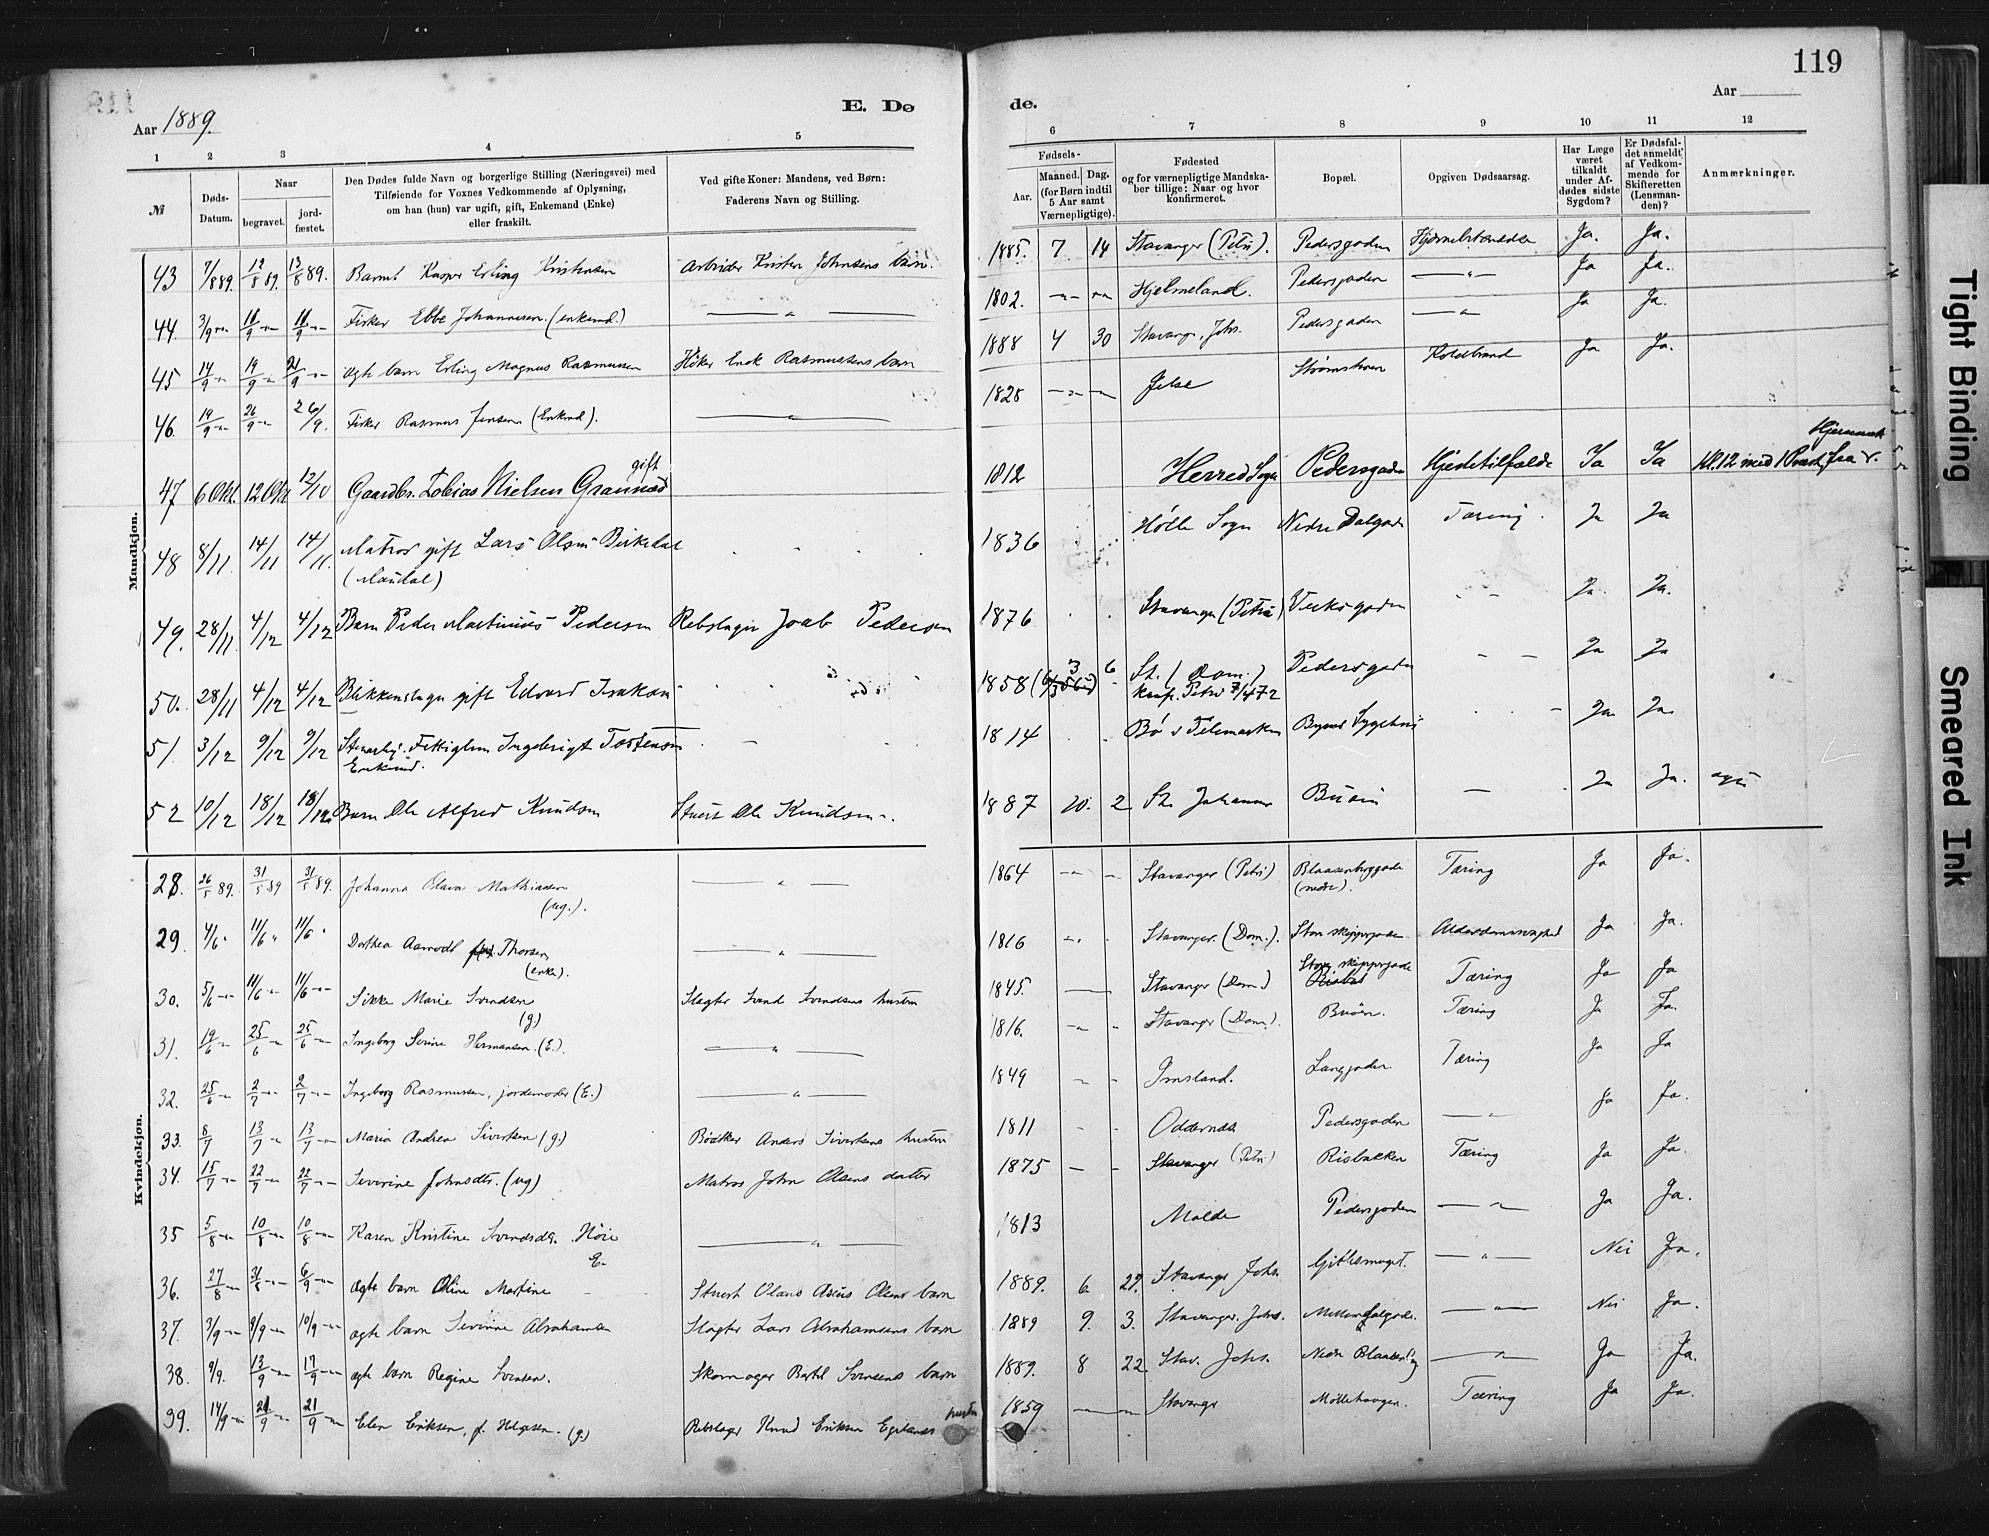 119
Aar 1889.
E. Dø
de.
Aar
1 2 3 4 5
6 7 8 9 10 11 12
№
Døds-Datum.
Naar
begravet.
jord-fæstet.
Den Dødes fulde Navn og borgerlige Stilling (Næringsvei) med
Tilføiende for Voxnes Vedkommende af Oplysning,
om han (hun) var ugift, gift, Enkemand (Enke)
eller fraskilt.
Ved gifte Koner: Mandens, ved Børn:
Faderens Navn og Stilling.
Fødsels-
Aar.
Maaned. Dag.
(for Børn indtil
5 Aar samt
Værnepligtige).
Fødested
og for værnepligtige Mandska-
ber tillige: Naar og hvor
konfirmeret.
Bopæl.
Opgiven Dødsaarsag.
Har Læge
været
tilkaldt
under Af-
dødes sidste
Sygdom?
Er Dødsfal-
det anmeldt
af Vedkom-
mende for
Skifteretten
(Lensman-
den)?
Anmærkninger.
Mandkjøn.
43 7/8 89. 12/8 89. 13/8 89. Barnet Kasper Erling Kristensen Arbeider Kristen Johnsens barn. 1885. 7 14 Stavanger (Petri). Pedersgaden Hjernebetændelse Ja. Ja.
44 3/9 Fisker Ebbe Johannesen (enkemd.) 1802. Hjelmeland. Pedersgaden Ja Ja.
45 14/9 19/9 21/9 ægte barn Erling Magnus Rasmussen Høker Enok Rasmussens barn 1888 4 30 Stavanger, Johs. Pedersgaden Ja Ja.
46. 19/9 26/9 26/9. Fisker Rasmus Jensen (Enkmd). 1828 Jelse Strømsteen Koldbrand Ja Ja.
47 6 Okt. 12 Okt 12/10 Gaardbr. Tobias Nielsen Grannæs gift 1812 Herred Sogn Pedersgaden Hjertetilfælde Ja Ja
48 8/11 14/11 14/11. Matros gift Lars Olsen Birkedal
(Maudal) 1836 Hølle Sogn Nedre Dalgade Tæring Ja Ja
49. 28/11 4/12 4/12 Barn Peder Martinius Pedersen Rebslager Joab Pedersen 1876 Stavanger (Petri) Verksgaden Ja. Ja.
50. 28/11 4/12 4/12 Blikkenslager gift Edvard Isaksen 1858 3 6 St. (Dom.)
konf. Petri 7/4 72 Pedersgaden Ja Ja
51. 3/12 9/12 9/12 Ingebrigt Torstensen
Enkemd. 1814 Bø i Telemarken Byens Sygehus Ja Ja
52 10/12 18/12 18/12 Barn Ole Alfred Knudsen Stuert Ole Knudsen 1887 10. 2 St. Johannes Buøen Ja Ja. ægte
Kvindekjøn.
28. 26/5 89. 31/5 89 31/5 89. Johanna Olava Mathiasen
(ug.). 1864 Stavanger (Petri) Blaasenborggade
(nedre). Tæring Ja Ja.
29. 4/6 11/6 11/6 Dorthea Aamodt Thorsen
(enke). 1816 Stavanger. (Dom.). Store skippergaden Alderdomssvaghed Ja Ja.
30. 5/6 11/6 11/6 Sikke Marie Svendsen
(g) Slagter Svend Svendsens hustru 1845. Stavanger (Dom.) Store skippergade Tæring Ja Ja
31. 19/6 25/6 25/6 Ingeborg Serine Hermansen. (E.). 1816. Stavanger (Dom.). Buøen. Tæring Ja Ja.
32. 25/6 2/7 2/7 Ingeborg Rasmussen, jordemoder (E.) 1849 Imsland. Langgaden. Tæring Ja Ja
33. 8/7 13/7 13/7 Maria Andrea Sivertsen (g.) Bødker Anders Sivertsens hustru 1811 Oddernæs Pedersgaden Ja Ja.
34. 15/7 22/7 22/7 Severine Johnsdtr. (ug) Matros John Olsens datter 1875 Stavanger (Petri) Risbakken Tæring Ja Ja.
35 5/8 10/8 10/8 Karen Kristine Svendsdtr. Høie
E. 1813 Molde Pedersgaden Ja Ja.
36. 27/8 31/8 6/9 ægte barn Oline Martine Stuert Olaus Aseus Olsens barn 1889. 6 29. Stavanger Johs. Gjitlesmuget. Nei Ja.
37. 3/9 9/9 10/9 ægte barn Severine Abrahamsen Slagter Lars Abrahamsens barn 1889 9. 3. Stavanger. Johs. Mellemdalgade. Nei Ja.
38. 9/9. 13/9 17/9 ægte barn Regine Svensen. Skomager Bertel Svensens barn 1889. 8 22 Stav. Johs. Nedre Blaasenborg Ja Ja.
39. 14/9 21/9 21/9 Elen Eriksen, f. Helgesen. (g.) Rebslager Knud Eriksen Egelands hustru 1859 Stavanger Møllehaugen. Tæring Ja Ja.
Tight Binding
Smeared Ink